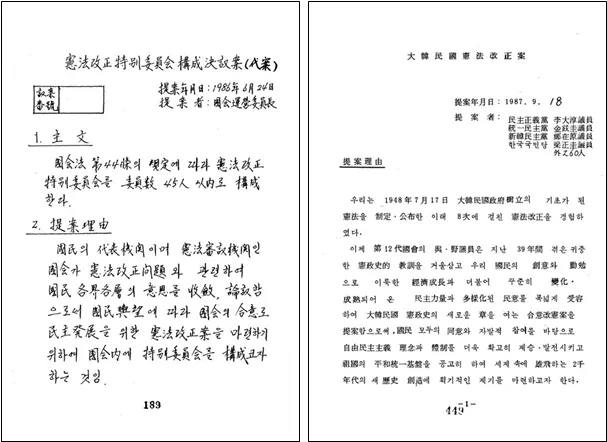 憲法改正特別委員会 構成決議案(代案)
議案
番號
提案年月日 : 1986年 6月 24日
提 案 者 : 国会運營委員長
1. 主 文
国会法 第44條의 規定에 따라 憲法改正
特別委員会를 委員數 45人 以內로 構成
한다.
2. 提案理由
国民의 代表機関이며 憲法審議機関인
国会가 憲法改正問題와 관련하여
国民 各界各層의 意思를 收斂, 論議함
으로써 国民與望에 따라 国会의 合意로
民主発展을 위한 憲法改正案을 마련하기
위하여 国会內에 特別委員会를 構成코자
하는 것임.
189
大韓民國憲法改正案
提案年月日 : 1987. 9. 18
提 案 者 : 民主正義黨 李大淳議員
統一民主黨 金鉉圭議員
新韓民主黨 鄭在原議員
한국국민당 梁正圭議員
外 260人
提案理由
우리는 1948年 7月 17日 大韓民國政府樹立의 기초가 된
憲法을 制定·公布한 이래 8次에 걸친 憲法改正을 경험하
였다.
이제 第12代國會의 與·野議員은 지난 39年間 겪은 귀중
한 憲政史的 教訓을 거울삼고 우리 國民의 創意와 勤勉
으로 이룩한 經濟成長과 더불어 꾸준히 變化·
成熟되어 온 民主力量과 多樣化된 民意를 폭넓게 受容
하여 大韓民國憲政史의 새로운 章을 여는 合意改憲案을
提案함으로써, 國民 모두의 同意와 자발적 참여를 바탕으로
自由民主主義 理念과 體制를 더욱 확고히 繼承·發展시키고
祖國의 平和統一基盤을 공고히 하여 세계 속에 雄飛하는 2千
年代의 새 歷史 創造에 획기적인 계기를 마련하고자 한다.
-1-
449